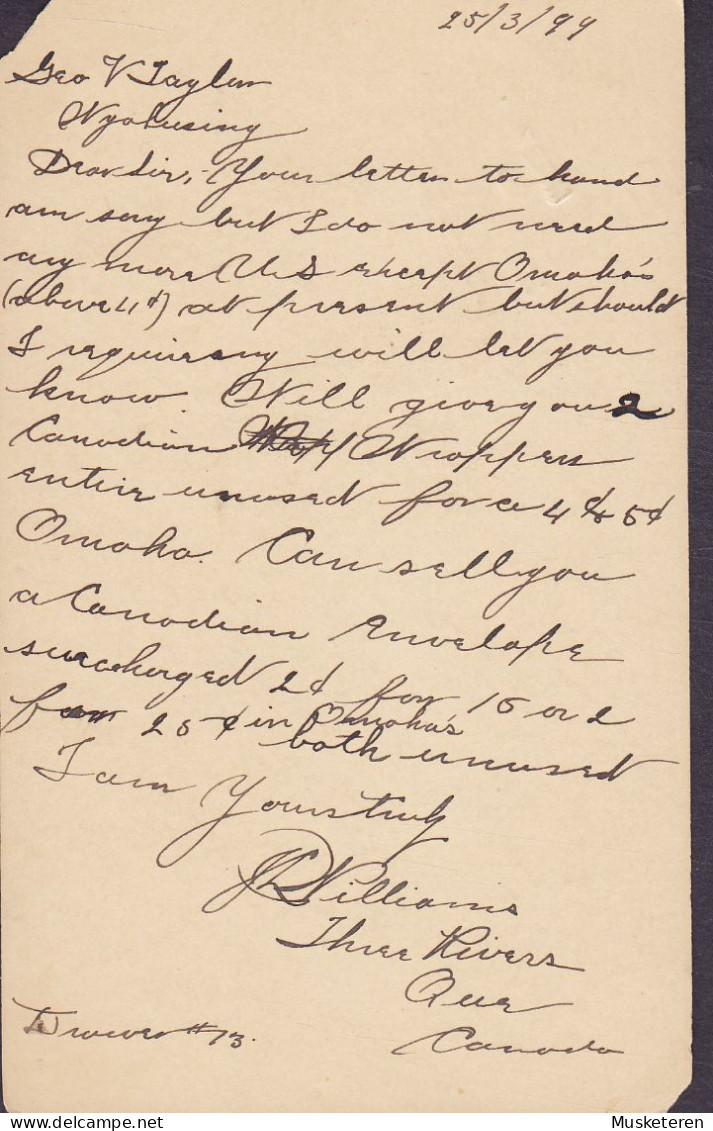 25/3/99
Geo V Taylor
Wyalusing
Dear Sir, - Your letter to hand
am sory but I do not need
any more U.S except Omaha's
(above 4¢) at present but should
I require any will let you
know. Will give you 2
Canadian Wrappers
entire unused for a 4¢ or 5¢
Omaha. Can sell you
a Canadian Envelope
surcharged 2¢ for 15 or 2
for 25¢ in Omaha's
both unused
I am Yours truly
Williams
Three Rivers
Que
Drawer #13.
Canada
Musketeren